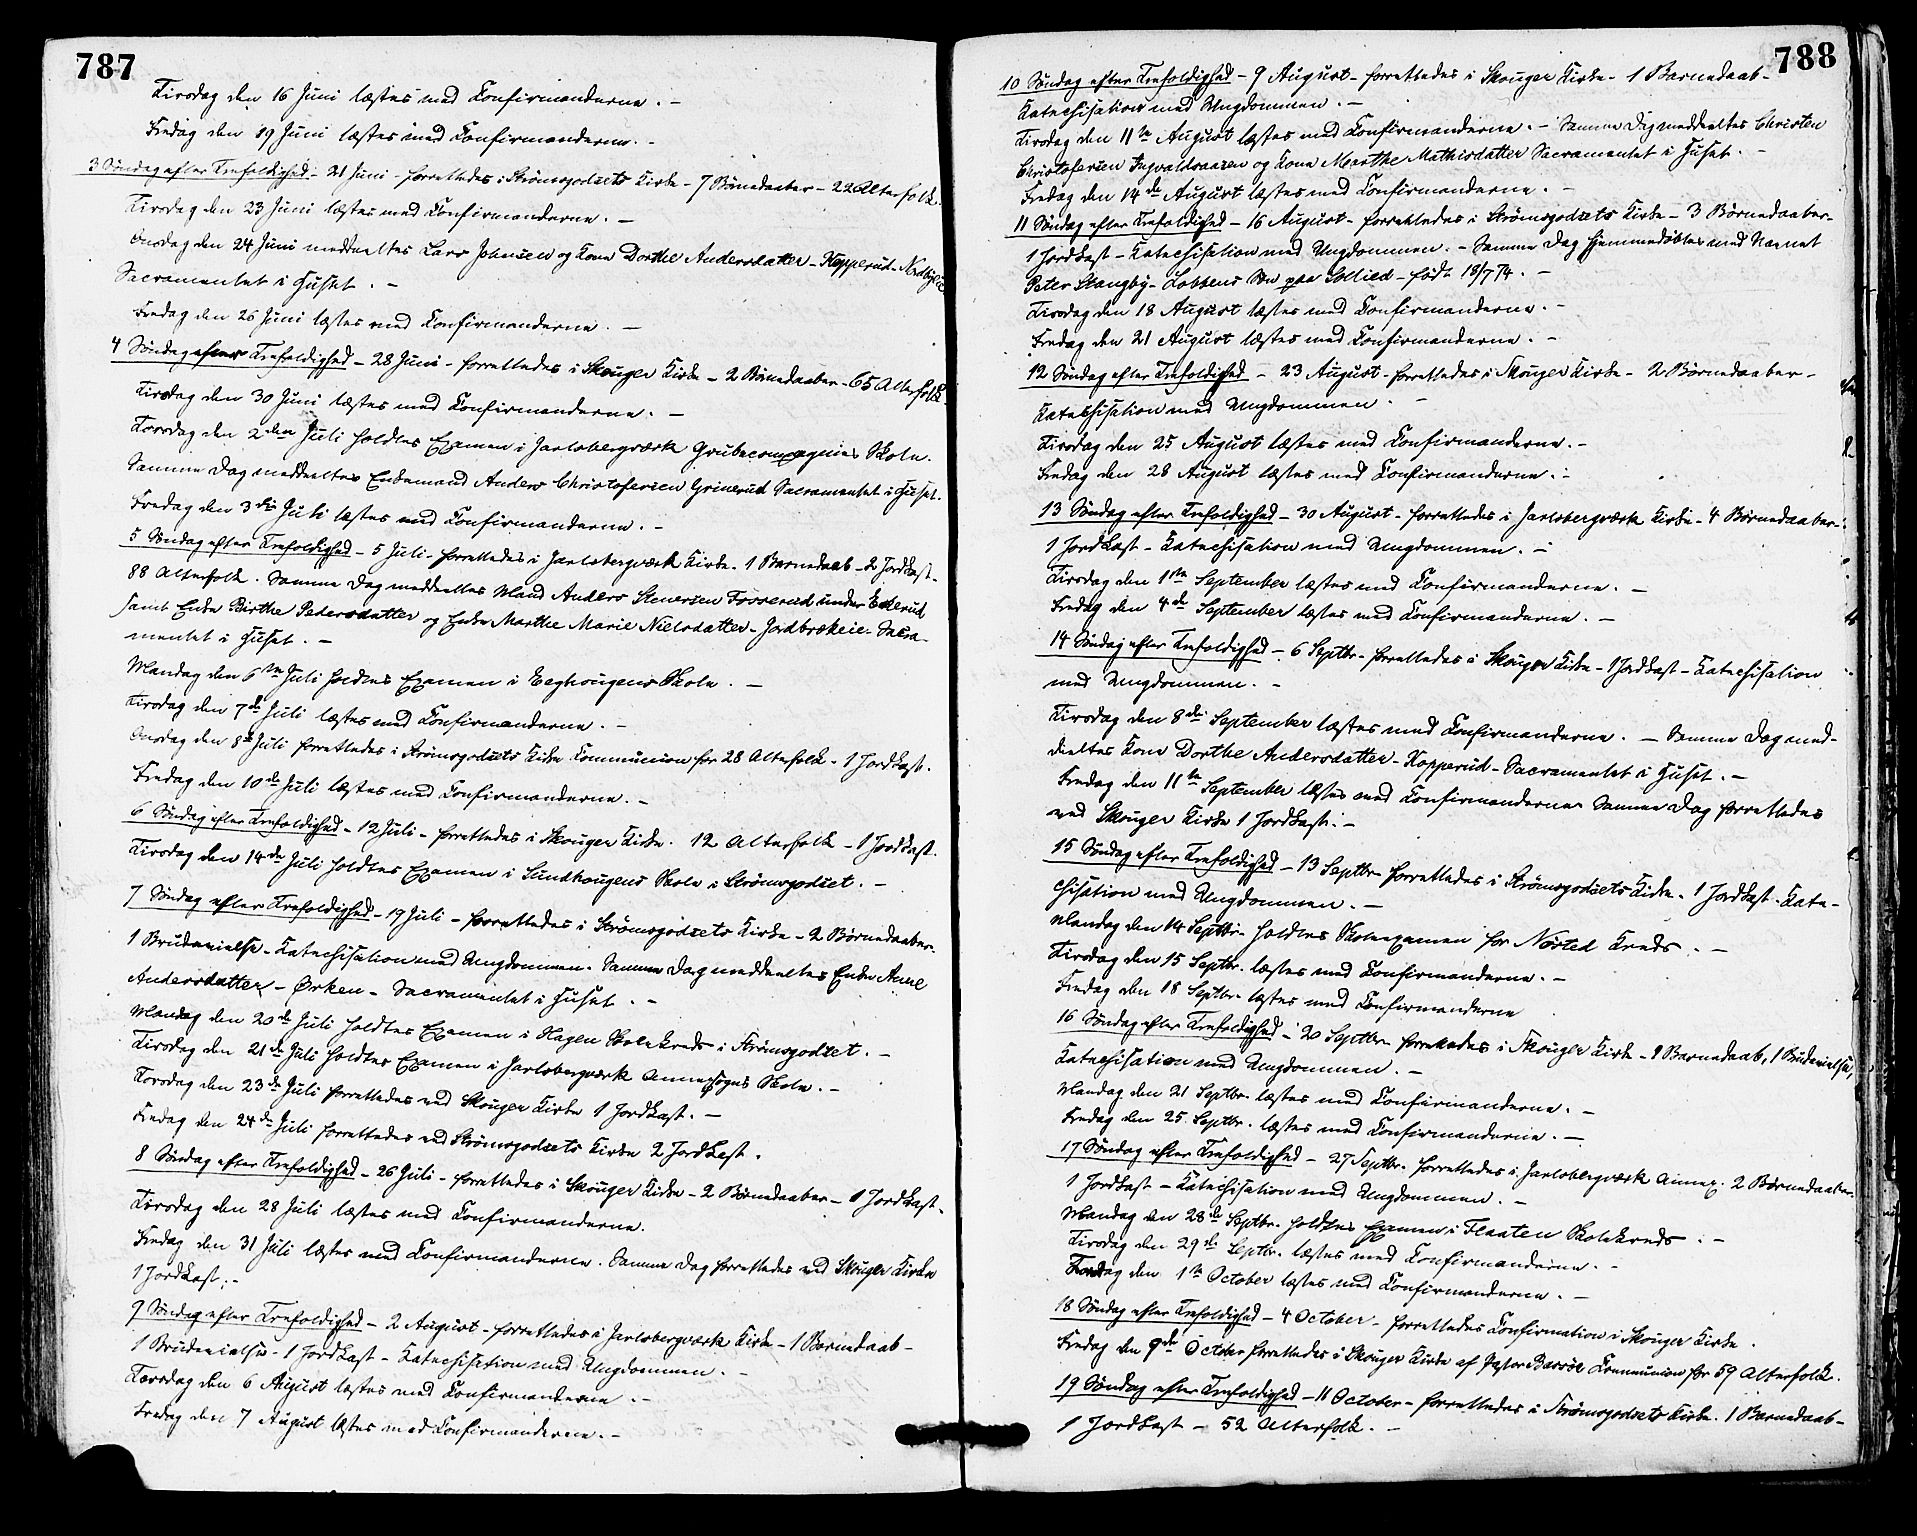 787
Tirsdag den 16 Juni læstes med Confirmanderne. –
Fredag den 19 Juni læstes med Confirmanderne. –
3 Søndag efter Trefoldighed – 21 Juni – forrettedes i Strømsgodsets Kirke – 7 Børnedaaber – 22 Alterfolk.
Tirsdag den 23 Juni læstes med Confirmanderne. –
Onsdag den 24 Juni meddeeltes Lars Johnsen og Kone Dorthe Andersdatter – Kopperud –
Sacramentet i Huset. –
Fredag den 26 Juni læstes med Confirmanderne. –
4 Søndag efter Trefoldighed – 28 Juni – forrettedes i Skouger Kirke – 2 Børnedaaber – 65 Alterfolk.
Tirsdag den 30 Juni læstes med Confirmanderne. –
Torsdag den 2den Juli holdtes Examen i Jarlsbergværk Grubecompagnies Skole.
Samme Dag meddeeltes Enkemand Anders Christofersen Grinerud Sacramentet i Huset.
Fredag den 3die Juli læstes med Confirmanderne. –
5 Søndag efter Trefoldighed – 5 Juli – forrettedes i Jarlsbergværk Kirke – 1 Barnedaab – 2 Jordkast –
88 Alterfolk. Samme Dag meddeeltes Mand Anders Steversen Fosserud under Ekerud
samt Enke Birthe Pedersdatter og Enke Marthe Marie Nielsdatter – Jordbrækeie – Sacra-
mentet i Huset. –
Mandag den 6te Juli holdtes Examen i Eeghougens Skole. –
Tirsdag den 7de Juli læstes med Confirmanderne. –
Onsdag den 8de Juli forrettedes i Strømsgodsets Kirke Communion for 28 Alterfolk – 1 Jordkast.
Fredag den 10de Juli læstes med Confirmanderne. –
6 Søndag efter Trefoldighed – 12 Juli – forrettedes i Skouger Kirke. 12 Alterfolk – 1 Jordkast.
Tirsdag den 14de Juli holdtes Examen i Sundhougens Skole i Strømsgodset. –
7 Søndag efter Trefoldighed – 19 Juli – forrettedes i Strømsgodsets Kirke – 2 Børnedaaber –
1 Brudevielse – Katechisation med Ungdommen. Samme Dag meddeeltes Enke Anne
Andersdatter – Ørken – Sacramentet i Huset. –
Mandag den 20de Juli holdtes Examen i Hagen Skolekreds i Strømsgodset. –
Tirsdag den 21de Juli holdtes Examen i Jarlsbergværk Annexsogns Skole. –
Torsdag den 23de Juli forrettedes ved Skouger Kirke 1 Jordkast. –
Fredag den 24de Juli forrettedes ved Strømsgodsets Kirke 2 Jordkast.
8 Søndag efter Trefoldighed – 26 Juli – forrettedes i Skouger Kirke – 2 Børnedaaber – 1 Jordkast.
Tirsdag den 28 Juli læstes med Confirmanderne.
Fredag den 31 Juli læstes med Confirmanderne. Samme Dag forrettedes ved Skouger Kirke
1 Jordkast. –
9 Søndag efter Trefoldighed – 2 August – forrettedes i Jarlsbergværk Kirke – 1 Barnedaab –
1 Brudevielse – 1 Jordkast – Katechisation med Ungdommen. –
Torsdag den 6 August læstes med Confirmanderne. –
Fredag den 7 August læstes med Confirmanderne. –
788
10 Søndag efter Trefoldighed – 9 August – forrettedes i Skouger Kirke – 1 Barnedaab –
Katechisation med Ungdommen. –
Tirsdag den 11te August læstes med Confirmanderne. – Samme Dag meddeeltes Christen
Christofersen Ingvaldsaasen og Kone Marthe Mathisdatter Sacramentet i Huset. –
Fredag den 14de August læstes med Confirmanderne. –
11 Søndag efter Trefoldighed – 16 August – forrettedes i Strømsgodsets Kirke – 3 Børnedaaber –
1 Jordkast – Katechisation med Ungdommen. – Samme Dag hjemmedøbtes med Navnet
Peter Stangby – Søn paa – født 18/7 74. –
Tirsdag den 18 August læstes med Confirmanderne. –
Fredag den 21 August læstes med Confirmanderne. –
12 Søndag efter Trefoldighed – 23 August – forrettedes i Skouger Kirke – 2 Børnedaaber –
Katechisation med Ungdommen. –
Tirsdag den 25 August læstes med Confirmanderne. –
Fredag den 28 August læstes med Confirmanderne. –
13 Søndag efter Trefoldighed – 30 August – forrettedes i Jarlsbergværk Kirke – 4 Børnedaaber –
1 Jordkast – Katechisation med Ungdommen. –
Tirsdag den 1ste September læstes med Confirmanderne. –
Fredag den 4de September læstes med Confirmanderne. –
14 Søndag efter Trefoldighed – 6 Septbr. forrettedes i Skouger Kirke – 1 Jordkast – Katechisation
med Ungdommen. –
Tirsdag den 8de September læstes med Confirmanderne. – Samme Dag med-
deeltes Kone Dorthe Andersdatter – Kopperud – Sacramentet i Huset. –
Fredag den 11te September læstes med Confirmanderne Samme Dag forrettedes
ved Skouger Kirke 1 Jordkast. –
15 Søndag efter Trefoldighed – 13 Septbr. forrettedes i Strømsgodsets Kirke – 1 Jordkast – Kate-
chisation med Ungdommen. –
Mandag den 14 Septbr. holdtes Skoleexamen for Nøsted Kreds. –
Tirsdag den 15 Septbr. læstes med Confirmanderne. –
Fredag den 18 Septbr. læstes med Confirmanderne
16 Søndag efter Trefoldighed – 20 Septbr. forrettedes i Skouger Kirke – 1 Barnedaab, 1 Brudevielse,
Katechisation med Ungdommen. –
Mandag den 21 Septbr. læstes med Confirmanderne. –
Fredag den 25 Septbr. læstes med Confirmanderne. –
17 Søndag efter Trefoldighed – 27 Septbr. forrettedes i Jarlsbergværk Annex. 2 Børnedaaber.
1 Jordkast – Katechisation med Ungdommen. –
Mandag den 28de Septbr. holdtes Examen i Flaaten Skolekreds. –
Tirsdag den 29de Septbr. læstes med Confirmanderne. –
Torsdag den 1ste October læstes med Confirmanderne. –
18 Søndag efter Trefoldighed – 4 October – forrettedes Confirmation i Skouger Kirke.
Fredag den 9de October forrettedes i Skouger Kirke af Communion for 59 Alterfolk.
19 Søndag efter Trefoldighed – 11 October – forrettedes i Strømsgodsets Kirke. 1 Barnedaab –
1 Jordkast – 52 Alterfolk. –